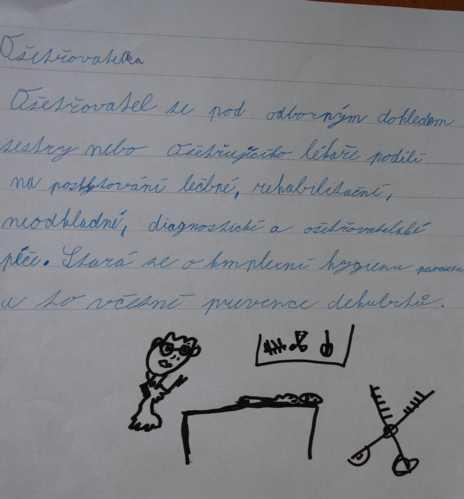 Ošetřovatelka
Ošetřovatel se pod odborným dohledem
sestry nebo ošetřujícího lékaře podílí
na poskytování léčbné, rehabilitační,
neodkladné, diagnostické a ošetřovatelské
péče. Stará se o komplexní hygienu
a to včetně prevence dekubitů.